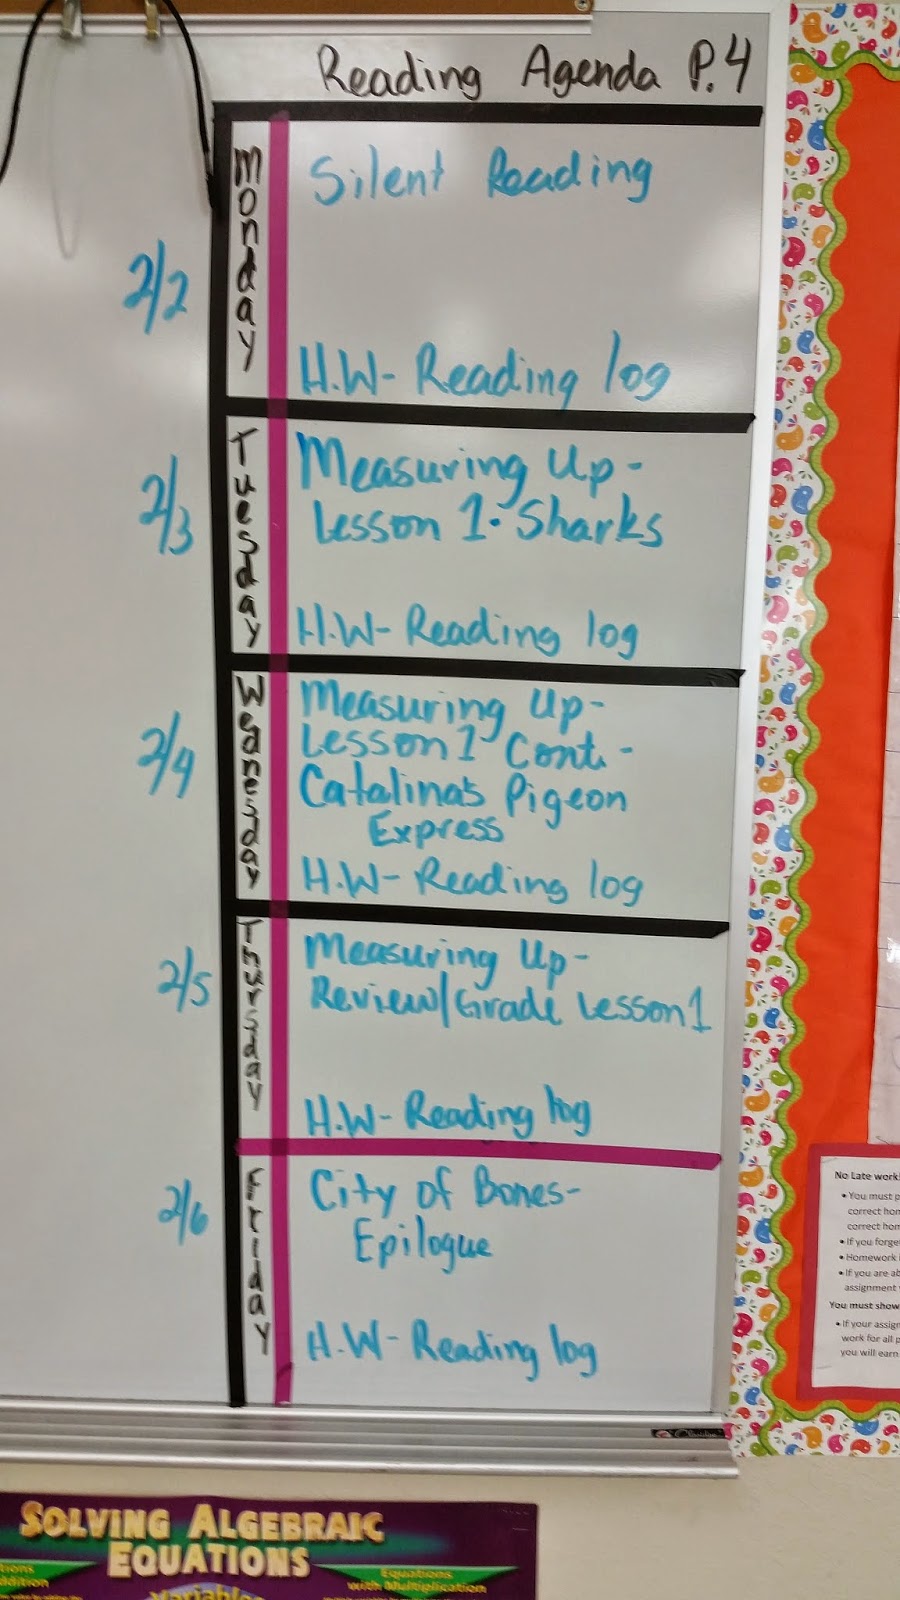 Reading Agenda P.4
Monday
2/2
Silent Reading
H.W- Reading log
Tuesday
2/3
Measuring Up-
Lesson 1. Sharks
H.W- Reading log
Wednesday
2/4
Measuring Up-
Lesson 1 Cont.-
Catalina's Pigeon
Express
H.W- Reading log
Thursday
2/5
Measuring Up-
Review/Grade Lesson 1
H.W- Reading log
Friday
2/6
City of Bones-
Epilogue
H.W- Reading log
No Late work
• You must
correct
correct
• If you
• Homework
• If you are
assignment
You must show
• If your
work for all
you will earn
SOLVING ALGEBRAIC
EQUATIONS
Equations
with Multiplication
Variables